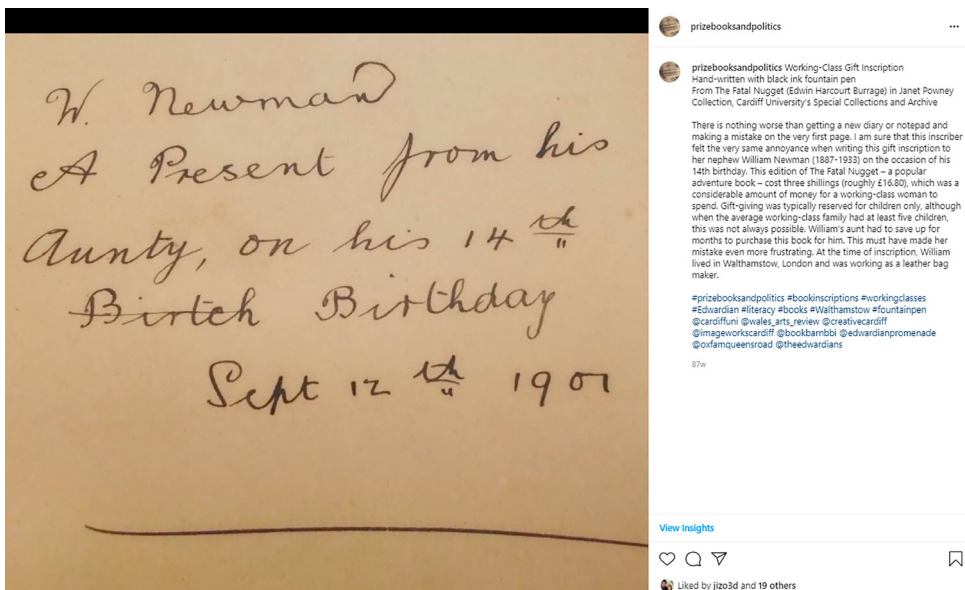 W. Newman
A Present from his
Aunty, on his 14th
Birtch Birthday
Sept 12th 1901
prizebooksandpolitics
prizebooksandpolitics Working-Class Gift Inscription
Hand-written with black ink fountain pen
From The Fatal Nugget (Edwin Harcourt Burrage) in Janet Powney
Collection, Cardiff University's Special Collections and Archive
There is nothing worse than getting a new diary or notepad and
making a mistake on the very first page. I am sure that this inscriber
felt the very same annoyance when writing this gift inscription to
her nephew William Newman (1887-1933) on the occasion of his
14th birthday. This edition of The Fatal Nugget – a popular
adventure book – cost three shillings (roughly £16.80), which was a
considerable amount of money for a working-class woman to
spend. Gift-giving was typically reserved for children only, although
when the average working-class family had at least five children,
this was not always possible. William's aunt had to save up for
months to purchase this book for him. This must have made her
mistake even more frustrating. At the time of inscription, William
lived in Walthamstow, London and was working as a leather bag
maker.
#prizebooksandpolitics #bookinscriptions #workingclasses
#Edwardian #literacy #books #Walthamstow #fountainpen
@cardiffuni @wales_arts_review @creativecardiff
@imageworkscardiff @bookbarnbbi @edwardianpromenade
@oxfamqueensroad @theedwardians
87w
View Insights
Liked by jizo3d and 19 others